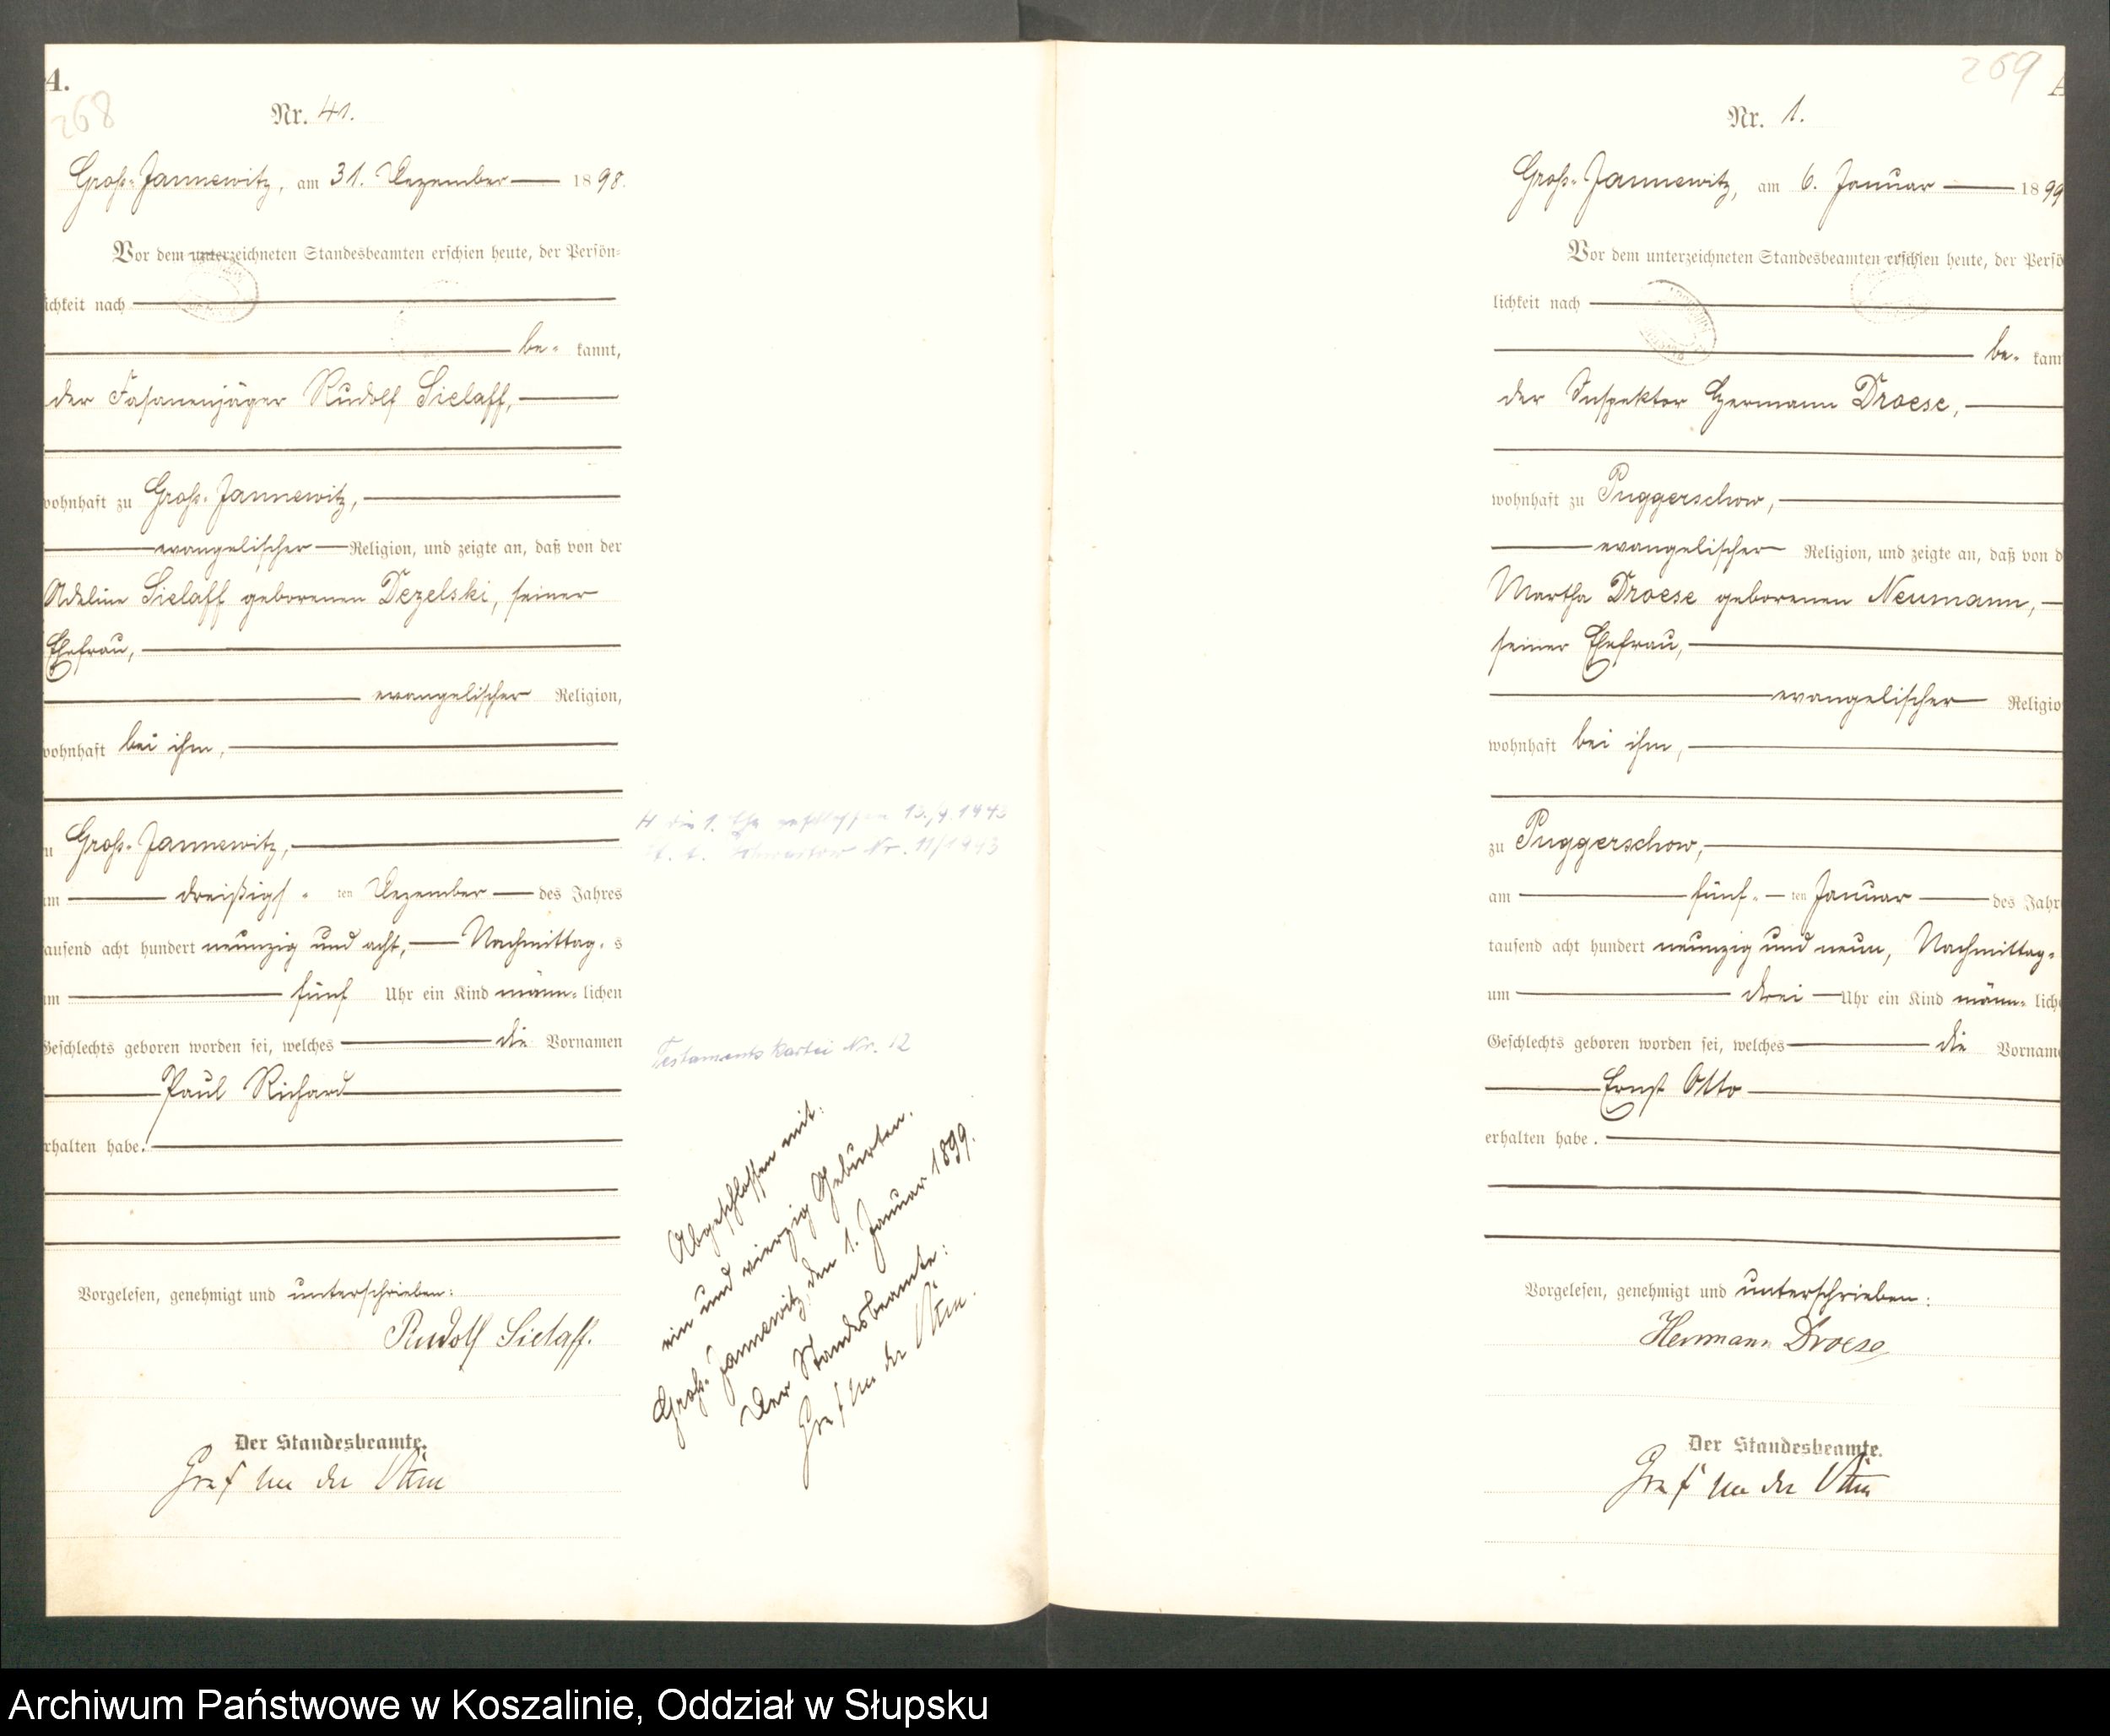 A.
268
Nr. 41.
Groß-Jannewitz, am 31. Dezember 1898.
Vor dem unterzeichneten Standesbeamten erschien heute, der Persön-
lichkeit nach
be- kannt,
der Fasanenjäger Rudolf Sielaff,
wohnhaft zu Groß-Jannewitz,
evangelischer Religion, und zeigte an, daß von der
Adeline Sielaff geborenen Dezelski, seiner
Ehefrau,
evangelischer Religion,
wohnhaft bei ihm,
zu Groß-Jannewitz,
am dreißigs- ten Dezember des Jahres
tausend acht hundert neunzig und acht, Nachmittag- s
um fünf Uhr ein Kind männ- lichen
Geschlechts geboren worden sei, welches die Vornamen
Paul Richard
erhalten habe.
Vorgelesen, genehmigt und unterschrieben:
Rudolf Sielaff.
Der Standesbeamte.
Graf von der
1. Ehe geschlossen 13./4.1943
Nr. 11/1943
Testamentskartei Nr. 12
Abgeschlossen mit:
ein und vierzig Geburten.
Groß-Jannewitz, den 1. Januar 1899.
Der Standesbeamte:
Graf von der
269
Nr. 1.
Groß-Jannewitz, am 6. Januar 1899
Vor dem unterzeichneten Standesbeamten erschien heute, der Persö
lichkeit nach
be- kann
der Inspektor Hermann Droese,
wohnhaft zu Puggerschow,
evangelischer Religion, und zeigte an, daß von d
Martha Droese geborenen Neumann,
seiner Ehefrau,
evangelischer Religio
wohnhaft bei ihm,
zu Puggerschow,
am fünf- ten Januar des Jahr
tausend acht hundert neunzig und neun, Nachmittag-
um drei Uhr ein Kind männ- liche
Geschlechts geboren worden sei, welches die Vorname
Ernst Otto
erhalten habe.
Vorgelesen, genehmigt und unterschrieben:
Hermann Droese
Der Standesbeamte.
Graf von der
Archiwum Państwowe w Koszalinie, Oddział w Słupsku